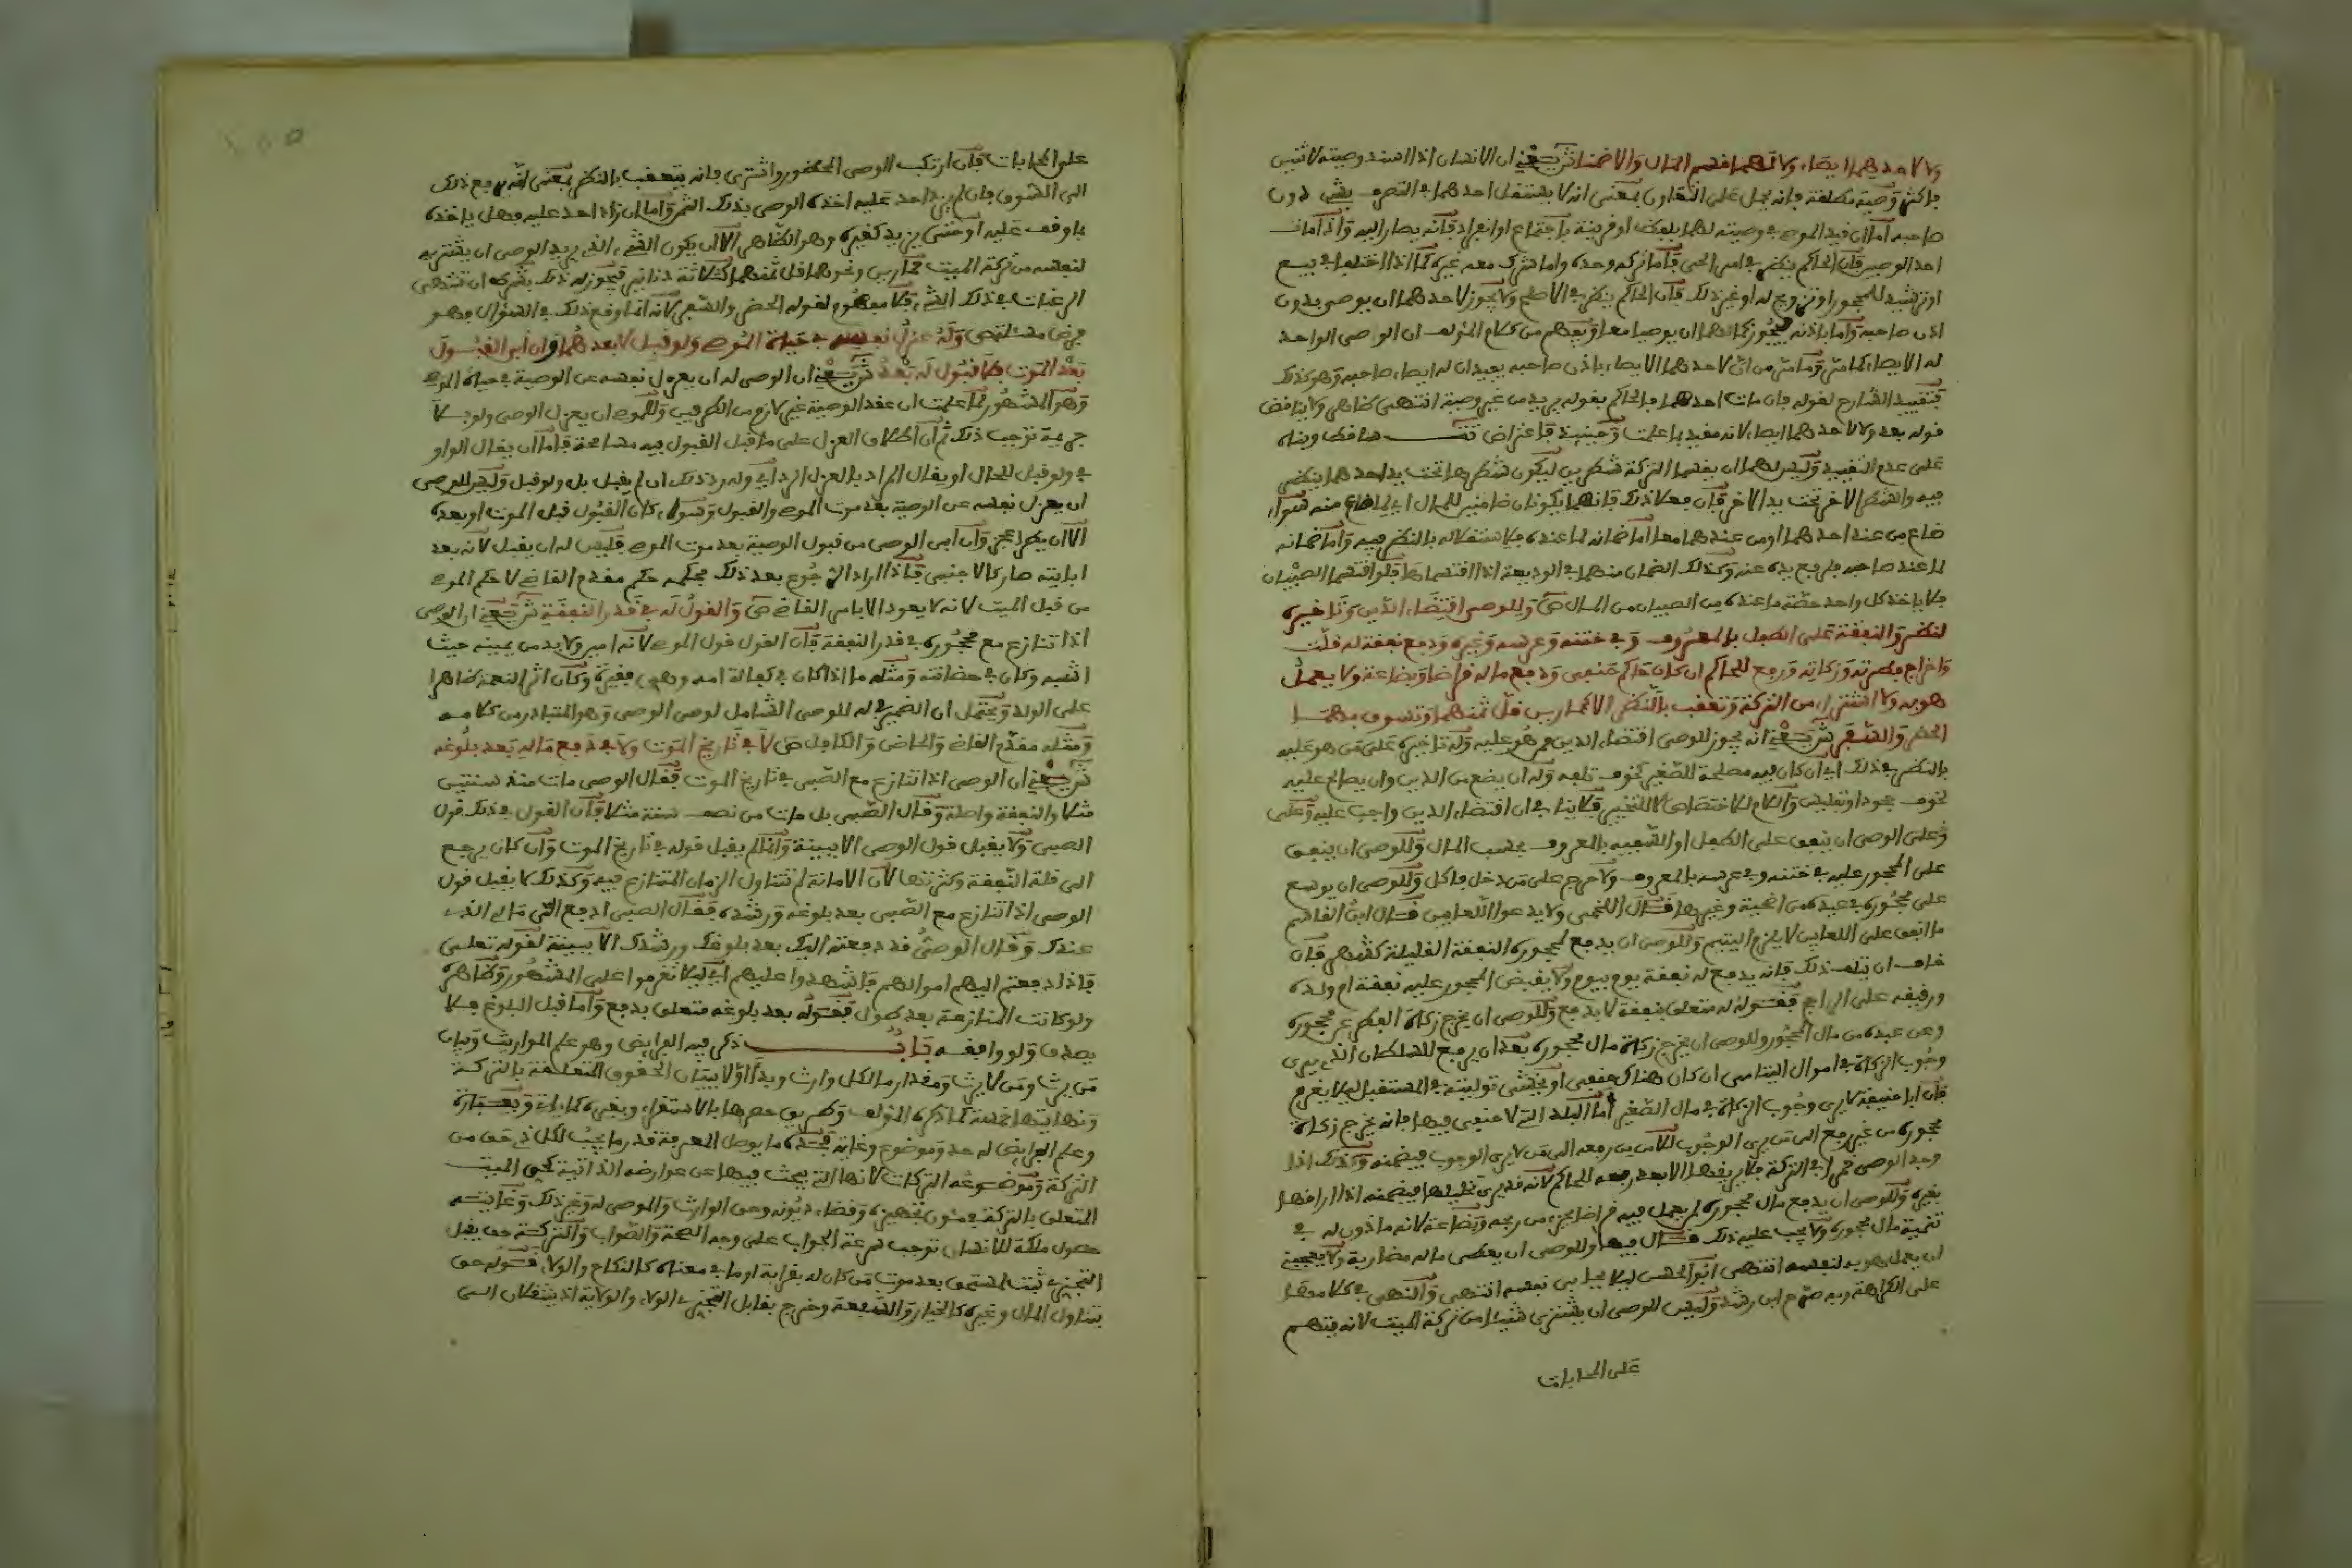 ولا لاحدهما ايصاء ولا لهما قسم المال والا ضمنا ش يعني ان الانسان اذا اسند وصيته لاثنين
فاكثر وصية مطلقة فانه يحمل على التعاون بمعنى انه لا يستقل احدهما بالتصرف بشيء دون
صاحبه اما ان قيد الموصي وصيته لهما بلفظ او قرينة باجتماع او انفراد فانه يصار اليه واذا مات
احد الوصيين فان الحاكم ينظر في امر الحي فاما تركه وحده واما شرك معه غيره كما اذا اختلفا في بيع
او ترشيد للمحجور او تزويج له او غير ذلك فان الحاكم ينظر في الاصلح ولا يجوز لاحدهما ان يوصي بدون
اذن صاحبه واما باذنه فيجوز كما لهما ان يوصيا معا ويفهم من كلام المؤلف ان الوصي الواحد
له الايصاء كما مر وما مر من ان لاحدهما الايصاء باذن صاحبه يفيد ان له ايصاء صاحبه وهو كذلك
فتقييد الشارح لقوله فان مات احدهما فالحاكم بقوله يريد من غير وصية انتهى ظاهر ولا يناقض
قوله بعد ولا لاحدهما ايصاء لانه مقيد بما علمت وحينئذ فاعتراض تت ساقط وبناه
على عدم التقييد وليس لهما ان يقسما التركة شطرين ليكون شطرها تحت يد احدهما ينظر
فيه والشطر الاخر تحت يد الاخر فان فعلا ذلك فانهما يكونان ضامنين للمال اي لما ضاع منه سواء
ضاع من عند احدهما او من عندهما معا اما ضمانه لما عنده فلاستقلاله بالنظر فيه واما ضمانه
لما عند صاحبه فلرفع يده عنه وكذلك الضمان منهما في الوديعة اذا اقتسماها فلو اقتسما الصبيان
فلا ياخذ كل واحد حصة ما عنده من الصبيان من المال ص وللوصي اقتضاء الدين وتاخيره
لنظر والنفقة على الطفل بالمعروف وفي ختنه وعرسه وعيده ودفع نفقة له قلت
واخراج فطرته وزكاته ورفع للحاكم ان كان حاكم حنفي ودفع ماله قراضا وبضاعة ولا يعمل
هو به ولا اشتراء من التركة وتعقب بالنظر الا كحمارين قل ثمنهما وتسوق بهما
الحضر والسفر ش يعني انه يجوز للوصي اقتضاء الدين ممن هو عليه وله تاخيره على من هو عليه
بالنظر في ذلك اي ان كان فيه مصلحة للصغير كخوف تلفه وله ان يضع من الدين وان يصالح عليه
لخوف جحود او تفليس واللام للاختصاص لا للتخيير فلا ينافي ان اقتضاء الدين واجب عليه وعلى
وعلى الوصي ان ينفق على الطفل او السفيه بالمعروف بحسب المال وللوصي ان ينفق
على المحجور عليه في ختنه وفي عرسه بالمعروف ولا حرج على من دخل فاكل وللوصي ان يوسع
على محجوره في عيده من اضحية وغيرها قال اللخمي ولا يدعو اللعابين قال ابن القاسم
ما انفق على اللعابين لا يلزم اليتيم وللوصي ان يدفع لمحجوره النفقة القليلة كشهر فان
خاف ان يتلف ذلك فانه يدفع له نفقة يوم بيوم ولا يقبض المحجور عليه نفقة ام ولده
ورقيقه على الراجح فقوله له متعلق بنفقة لا بدفع وللوصي ان يخرج زكاة الفطر عن محجوره
وعن عبده من مال المحجور وللوصي ان يخرج زكاة مال محجوره بعد ان يرفع للسلطان الذي يرى
وجوب الزكاة في اموال اليتامى ان كان هناك حنفي او يخشى توليته في المستقبل ليلا يغرم
فان ابا حنيفة لا يرى وجوب الزكاة في مال الصغير اما البلد التي لا حنفي فيها فانه يخرج زكاة
محجوره من غير رفع الى من يرى الوجوب للامن من رفعه الى من لا يرى الوجوب فيضمنه وكذلك اذا
وجد الوصي خمرا في التركة فلا يريقها الا بعد رفعه الحاكم لانه قد يرى تخليلها فيضمنه اذا اراقها
بغيره وللوصي ان يدفع مال محجوره لمن يعمل فيه قراضا بجزء من ربحه وبضاعة لانه ماذون له في
تنمية مال محجوره ولا يجب عليه ذلك قال فيها وللوصي ان يعطي ماله مضاربة ولا يعجبني
ان يعمل هو به لنفسه انتهى ابو الحسن ليلا يحابي نفسه انتهى والنهي في كلامها
على الكراهة وبه صرح ابن رشد وليس للوصي ان يشتري شيئا من تركة الميت لانه يتهم
على المحابات
على المحابات فان ارتكب الوصي المحظور واشترى فانه يتعقب بالنظر بمعنى انه يرفع ذلك
الى السوق فان لم يزد احد عليه اخذه الوصي بذلك الثمر واما ان زاد احد عليه فهل ياخذه
بما وقف عليه او حتى يزيد كغيره وهو الظاهر الا ان يكون الشيء الذي يريد الوصي ان يشتريه
لنفسه من تركة الميت حمارين ونحوهما قل ثمنهما كثلاثة دنانير فيجوز له ذلك بشرط ان تنتهي
الرغبات في ذلك الشيء فلا مفهوم لقوله الحضر والسفر لانه انما وقع ذلك في السؤال فهو
فرض مسئلة ص وله عزل نفسه في حياة الموصي ولو قبل لا بعدهما وان ابى القبول
بعد الموت فلا قبول له بعد ش يعني ان الوصي له ان يعزل نفسه عن الوصية في حياة الموصي
وهو المشهور لما علمت ان عقد الوصية غير لازم من الطرفين وللموصي ان يعزل الوصي ولو بلا
جريمة توجب ذلك ثم ان اطلاق العزل على ما قبل القبول فيه مسامحة فاما ان يقال الواو
في ولو قبل للحال او يقال المراد بالعزل الرد اي وله رد ذلك ان لم يقبل بل ولو قبل وليس للوصي
ان يعزل نفسه عن الوصية بعد موت الموصي والقبول وسواء كان القبول قبل الموت او بعده
الا ان يطرا عجز وان ابى الوصي من قبول الوصية بعد موت الموصي فليس له ان يقبل لانه بعد
ابايته صار كالاجنبي فاذا اراد الرجوع بعد ذلك فحكمه حكم مقدم القاضي لا حكم الموصي
من قبل الميت لانه لا يعود الا بامر القاضي ص والقول له في قدر النفقة ش يعني ان الوصي
اذا تنازع مع محجوره في قدر النفقة فان القول قول الموصي لانه امين ولا بد من يمينه حيث
اشبه وكان في حضانته ومثله ما اذا كان في كفالة امه وهي فقيرة وكان اثر النعمة ظاهرا
على الولد ويحتمل ان الضمير في له للوصي الشامل لوصي الوصي وهو المتبادر من كلامه
ومثله مقدم القاضي والحاضن والكافل ص لا في تاريخ الموت ولا في دفع ماله بعد بلوغه
ش يعني ان الوصي اذا تنازع مع الصبي في تاريخ الموت فقال الوصي مات منذ سنتين
مثلا والنفقة واصلة وقال الصبي بل مات من نصف سنة مثلا فان القول في ذلك قول
الصبي ولا يقبل قول الوصي الا ببينة وانما لم يقبل قوله في تاريخ الموت وان كان يرجع
الى قلة النفقة وكثرتها لان الامانة لم تتناول الزمان المتنازع فيه وكذلك لا يقبل قول
الوصي اذا تنازع مع الصبي بعد بلوغه ورشده فقال الصبي ادفع الي مالي الذي
عندك وقال الوصي قد دفعته اليك بعد بلوغك ورشدك الا ببينة لقوله تعلى
فاذا دفعتم اليهم اموالهم فاشهدوا عليهم اي ليلا تغرموا على المشهور وظاهره
ولو كانت المنازعة بعد طول فقوله بعد بلوغه متعلق بدفع واما قبل البلوغ فلا
يصدق ولو وافقه باب ذكر فيه الفرايض وهو علم المواريث وبيان
من يرث ومن لا يرث ومقدار ما لكل وارث وبدا اولا ببيان الحقوق المتعلقة بالتركة
ونهايتها خمسة كما ذكره المؤلف وطريق حصرها بالاستقراء
وعلم الفرايض له حد وموضوع وغاية فحده ما يوصل لمعرفة قدر ما يجب لكل ذي حق من
التركة وموضوعه التركات لانها التي يبحث فيها عن عوارضه الذاتية كحق الميت
المتعلق بالتركة في مئون تجهيزه وقضاء ديونه وحق الوارث والموصى له وغير ذلك وغايته
حصول ملكة للانسان توجب سرعة الجواب على وجه الصحة والصواب والتركة حق يقبل
التجزي ثبت لمستحق بعد موت من كان له بقرابة او ما في معناه كالنكاح والولاء فقوله حق
يتناول المال وغيره كالخيار والشفعة وخرج بقابل التجزي الولاء والولاية اذ ينتقلان الى